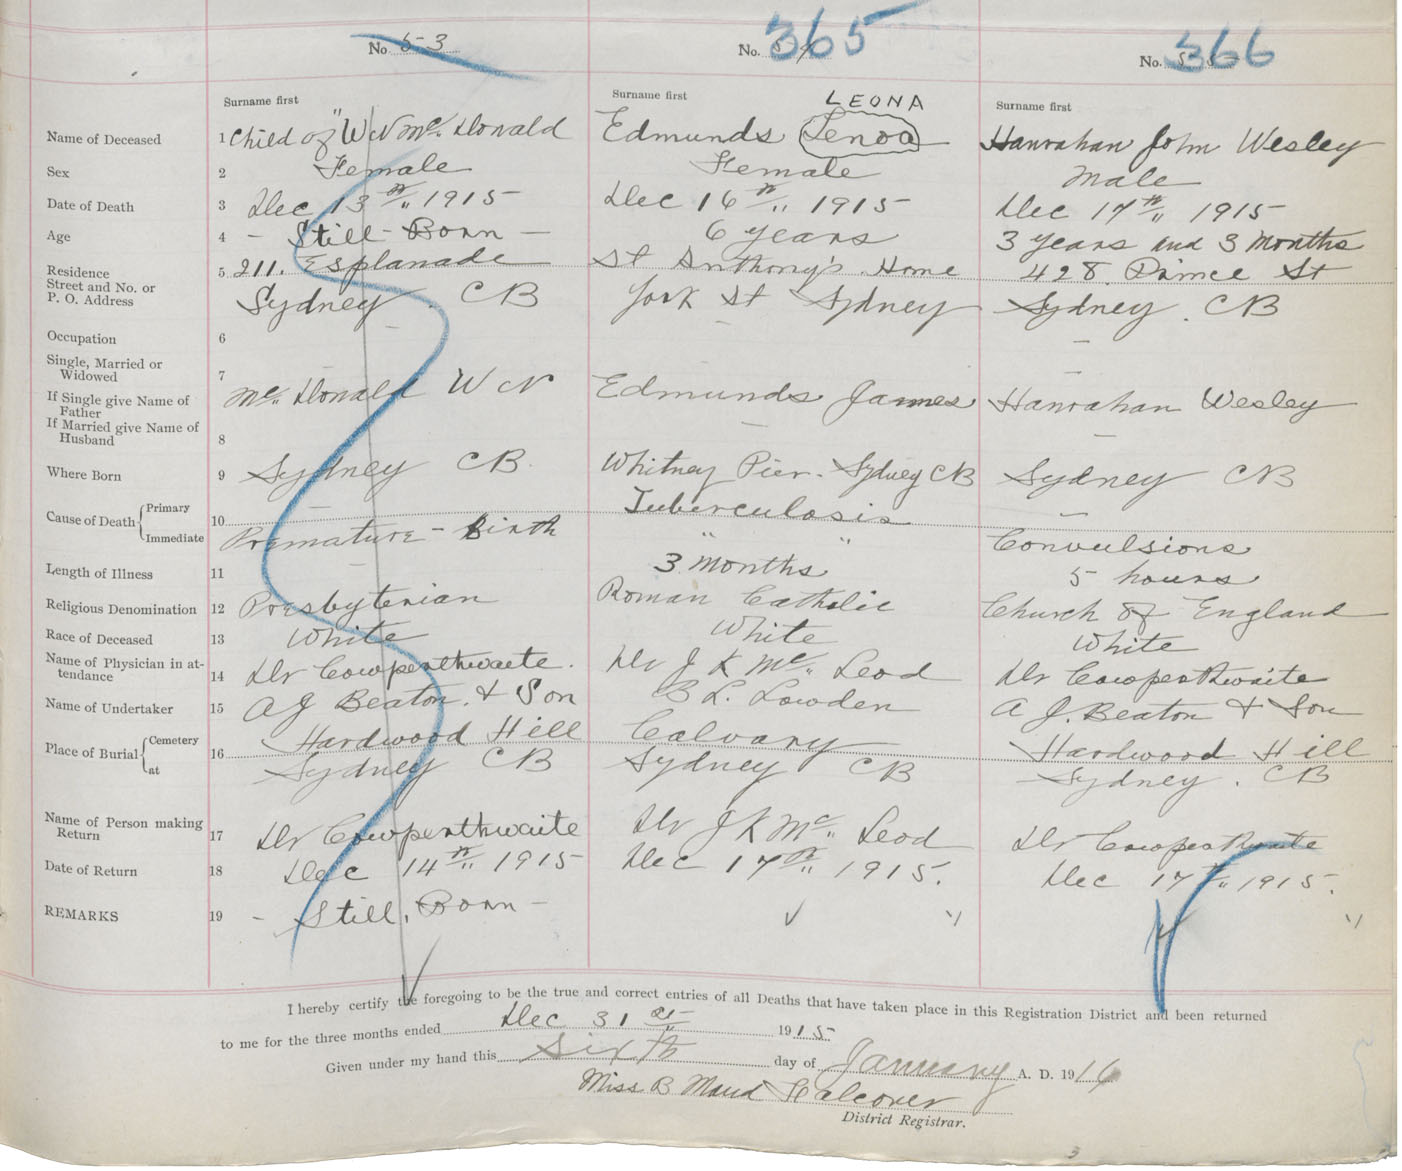 No. 53
No. 54 365
No. 55 366
Surname first
Surname first
LEONA
Surname first
Name of Deceased 1 Child of "W N Mc Donald
Edmunds Lenoa
Hanrahan John Wesley
Sex 2 Female
Female
Male
Date of Death 3 Dec 13th 1915
Dec 16th 1915
Dec 17th 1915
Age 4 - Still-Born -
6 years
3 years and 3 Months
Residence
Street and No. or
P. O. Address
5 211. Esplanade
Sydney. CB
St Anthony's Home
York St Sydney
428 Prince St
Sydney. CB
Occupation 6 -
-
-
Single, Married or
Widowed
7 -
-
If Single give Name of
Father
Mc Donald W N
Edmunds James
Hanrahan Wesley
If Married give Name of
Husband
8 -
-
Where Born 9 Sydney CB.
Whitney Pier. Sydney CB
Sydney CB
Cause of Death { Primary
Immediate
10 -
Premature-Birth
Tuberculosis
" "
-
Convulsions
Length of Illness 11 -
3 Months
5 hours
Religious Denomination 12 Presbyterian
Roman Catholic
Church of England
Race of Deceased 13 White
White
White
Name of Physician in at-
tendance
14 Dr Cowperthwaite.
Dr J K Mc Leod
Dr Cowperthwaite
Name of Undertaker 15 A J Beaton. & Son
B L. Lowden
A J. Beaton & Son
Place of Burial { Cemetery
at
16 Hardwood Hill
Sydney CB
Calvary
Sydney CB
Hardwood Hill
Sydney. CB
Name of Person making
Return
17 Dr Cowperthwaite
Dr J K Mc Leod
Dr Cowperthwaite
Date of Return 18 Dec 14th 1915
Dec 17th 1915.
Dec 17th 1915.
REMARKS 19 - Still. Born -
I hereby certify the foregoing to be the true and correct entries of all Deaths that have taken place in this Registration District and been returned
to me for the three months ended Dec 31st 1915
Given under my hand this Sixth day of January A. D. 1916
Miss B Maud Falconer
District Registrar.
3